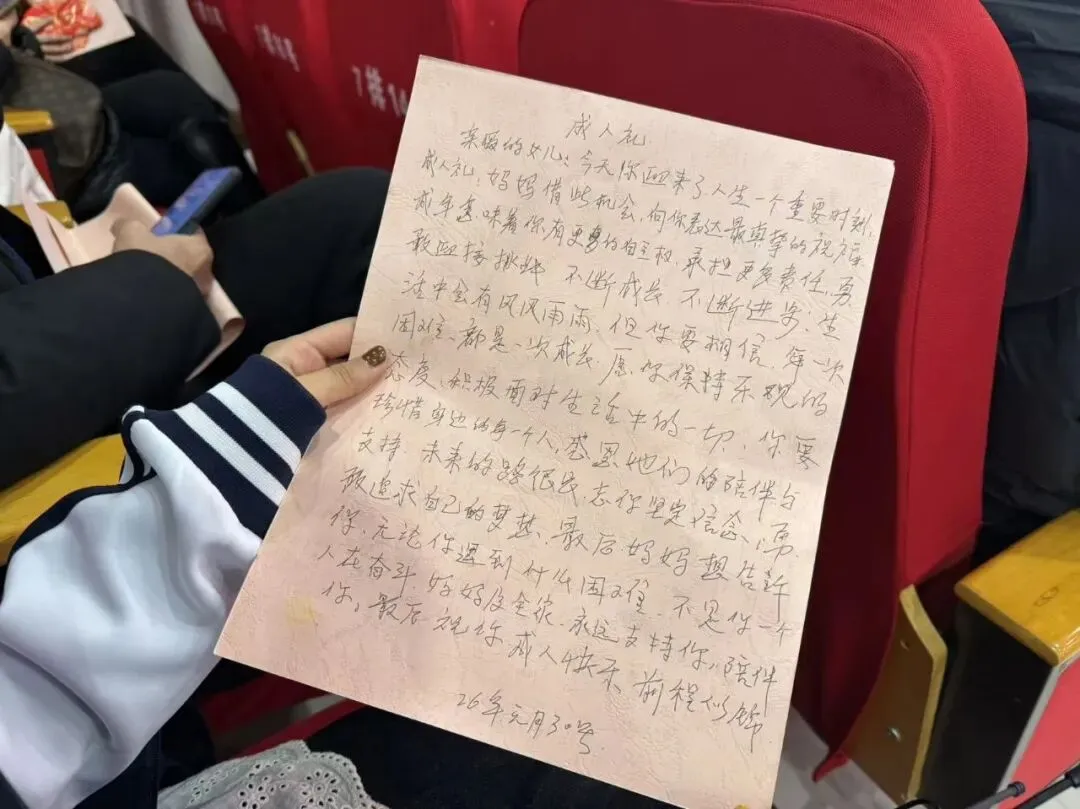 7排14
成人礼
亲爱的女儿:今天你迎来了人生一个重要时刻,
成人礼,妈妈借此机会,向你表达最真挚的祝福
成年意味着你有更多的自主权,承担更多责任,勇
敢迎接挑战 不断成长 不断进步;生
活中会有风风雨雨,但你要相信,每一次
困难、都是一次成长,愿你保持乐观的
态度、积极面对生活中的一切、你要
珍惜身边的每一个人,感恩她们的陪伴与
支持、未来的路很长,志你坚定信念,勇
敢追求自己的梦想、最后妈妈想告诉
你、无论你遇到什么困难、不是你一个
人在奋斗,妈妈及全家、永远支持你,陪伴
你,最后祝你成人快乐 前程似锦
26年元月30号